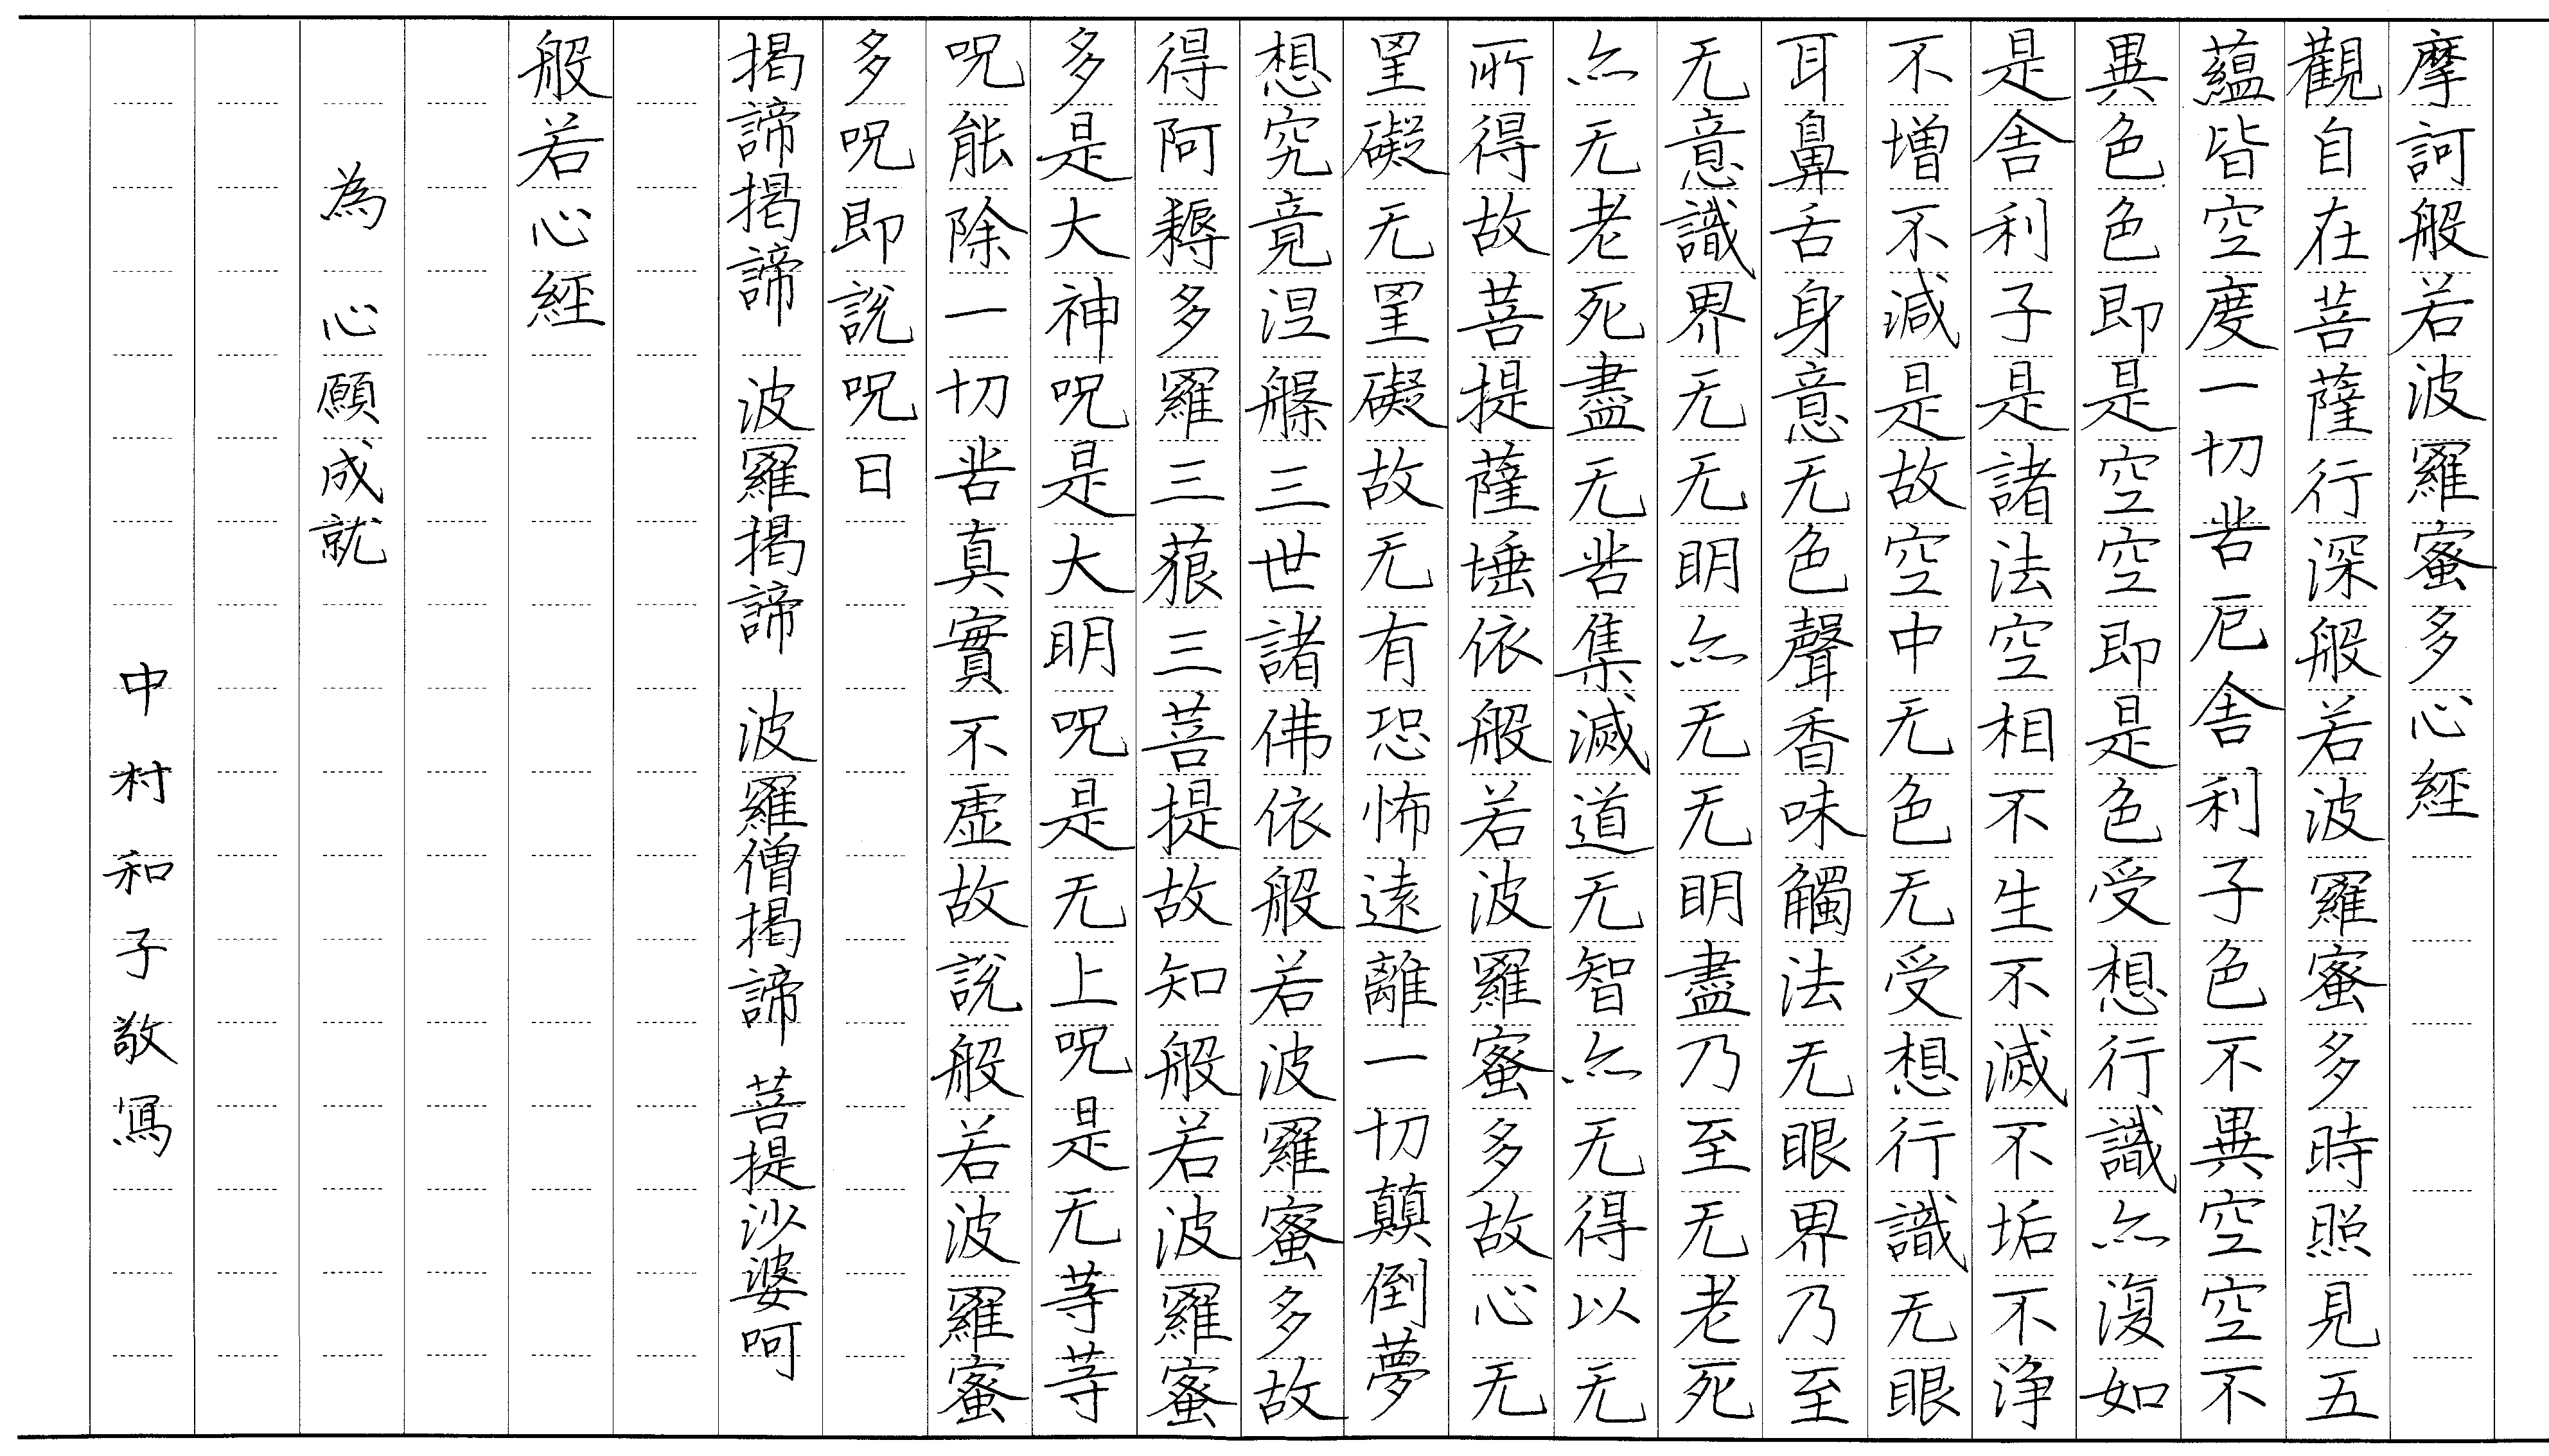 摩訶般若波羅蜜多心経
觀自在菩薩行深般若波羅蜜多時照見五
蘊皆空度一切苦厄舎利子色不異空空不
異色色即是空空即是色受想行識亦復如
是舎利子是諸法空相不生不滅不垢不浄
不增不減是故空中无色无受想行識无眼
耳鼻舌身意无色聲香味觸法无眼界乃至
无意識界无无明亦无无明盡乃至无老死
亦无老死盡无苦集滅道无智亦无得以无
所得故菩提薩埵依般若波羅蜜多故心无
罣礙无罣礙故无有恐怖遠離一切顛倒夢
想究竟涅槃三世諸佛依般若波羅蜜多故
得阿耨多羅三藐三菩提故知般若波羅蜜
多是大神呪是大明呪是无上呪是无等等
呪能除一切苦真實不虚故說般若波羅蜜
多呪即說呪曰
揭諦揭諦 波羅揭諦 波羅僧揭諦 菩提沙婆呵
般若心経
為 心願成就
中村和子敬寫